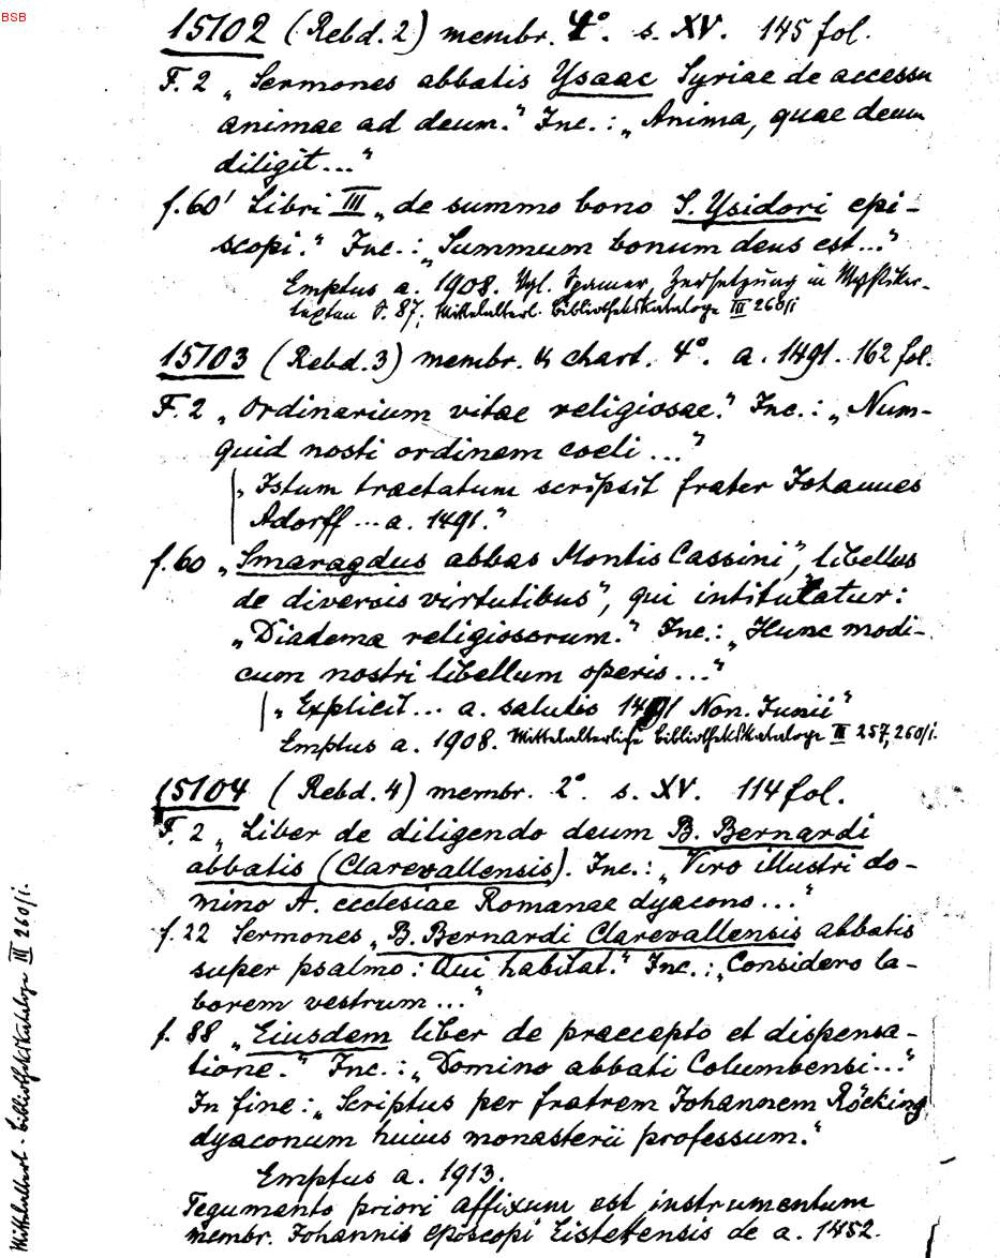 BSB
15102 (Rebd. 2) membr. 4°. s. XV. 145 fol.
F. 2 „Sermones abbatis Ysaac Syriae de accessu
animae ad deum.“ Inc.: „Anima, quae deum
diligit...“
f. 60' Libri III „de summo bono S. Ysidori epi-
scopi.“ Inc.: „Summum bonum deus est...“
Emptus a. 1908. Vgl. Spamer, Zersetzung in Mystiker-
texten S. 87; Mittelalterl. Bibliothekskataloge III 260/i
15103 (Rebd. 3) membr. & chart. 4°. a. 1491. 162 fol.
F. 2 „Ordinarium vitae religiosae.“ Inc.: „Num-
quid nosti ordinem coeli...“
„Istum tractatum scripsit frater Johannes
Adorff ... a. 1491.“
f. 60 „Smaragdus abbas Montis Cassini“, „libellus
de diversis virtutibus“, qui intitulatur:
„Diadema religiosorum.“ Inc.: „Hunc modi-
cum nostri libellum operis...“
„Explicit... a. salutis 1491 Non. Junii“
Emptus a. 1908. Mittelalterliche Bibliothekskataloge III 257, 260/i.
15104 (Rebd. 4) membr. 2°. s. XV. 114 fol.
F. 2 „Liber de diligendo deum B. Bernardi
abbatis (Clarevallensis). Inc.: „Viro illustri do-
mino A. ecclesiae Romanae dyacono...“
f. 22 Sermones „B. Bernardi Clarevallensis abbatis
super psalmo: Qui habitat.“ Inc.: „Considero la-
borem vestrum...“
f. 88 „Eiusdem liber de praecepto et dispensa-
tione.“ Inc.: „Domino abbati Columbensi...“
In fine: „Scriptus per fratrem Johannem Röcking
dyaconum huius monasterii professum.“
Emptus a. 1913.
Tegumento priori affixum est instrumentum
membr. Johannis episcopi Eistetensis de a. 1452.
Mittelalterl. Bibliothekskataloge III 260/i.